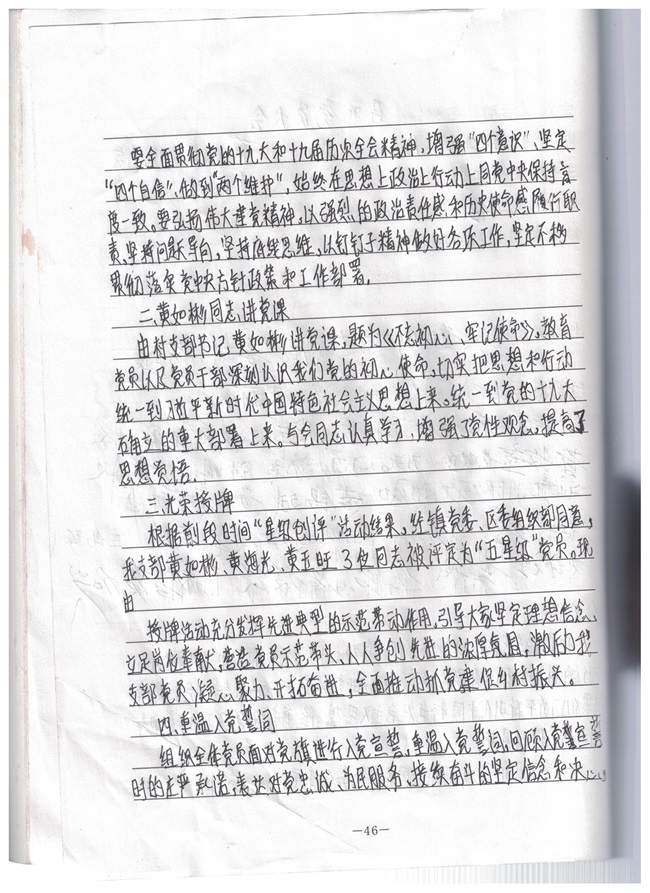 要全面贯彻党的十九大和十九届历次全会精神,增强“四个意识”、坚定
“四个自信”、做到“两个维护”,始终在思想上政治上行动上同党中央保持高
度一致。要弘扬伟大建党精神,以强烈的政治责任感和历史使命感履行职
责、坚持问题导向,坚持底线思维,以钉钉子精神做好各项工作,坚定不移
贯彻落实党中央方针政策和工作部署。
二、黄如彬同志讲党课
由村支部书记黄如彬讲党课,题为《不忘初心、牢记使命》,教育
党员以及党员干部深刻认识我们党的初心使命,切实把思想和行动
统一到习近平新时代中国特色社会主义思想上来。统一到党的十九大
确立的重大部署上来。与会同志认真学习,增强了党性观念,提高了
思想觉悟。
三、光荣授牌
根据前段时间“星级创评”活动结果。经镇党委、区委组织部同意,
我支部黄如彬、黄炳光、黄五旺3位同志被评定为“五星级”党员。现
由
授牌活动充分发挥先进典型的示范带动作用,引导大家坚定理想信念、
立足岗位奉献,营造党员示范带头、人人争创先进的浓厚氛围,激励我
支部党员凝心聚力、开拓奋进,全面推动抓党建促乡村振兴。
四、重温入党誓词
组织全体党员面对党旗进行入党宣誓,重温入党誓词,回顾入党宣誓
时的庄严承诺,表达对党忠诚、为民服务、接续奋斗的坚定信念和决心
—46—